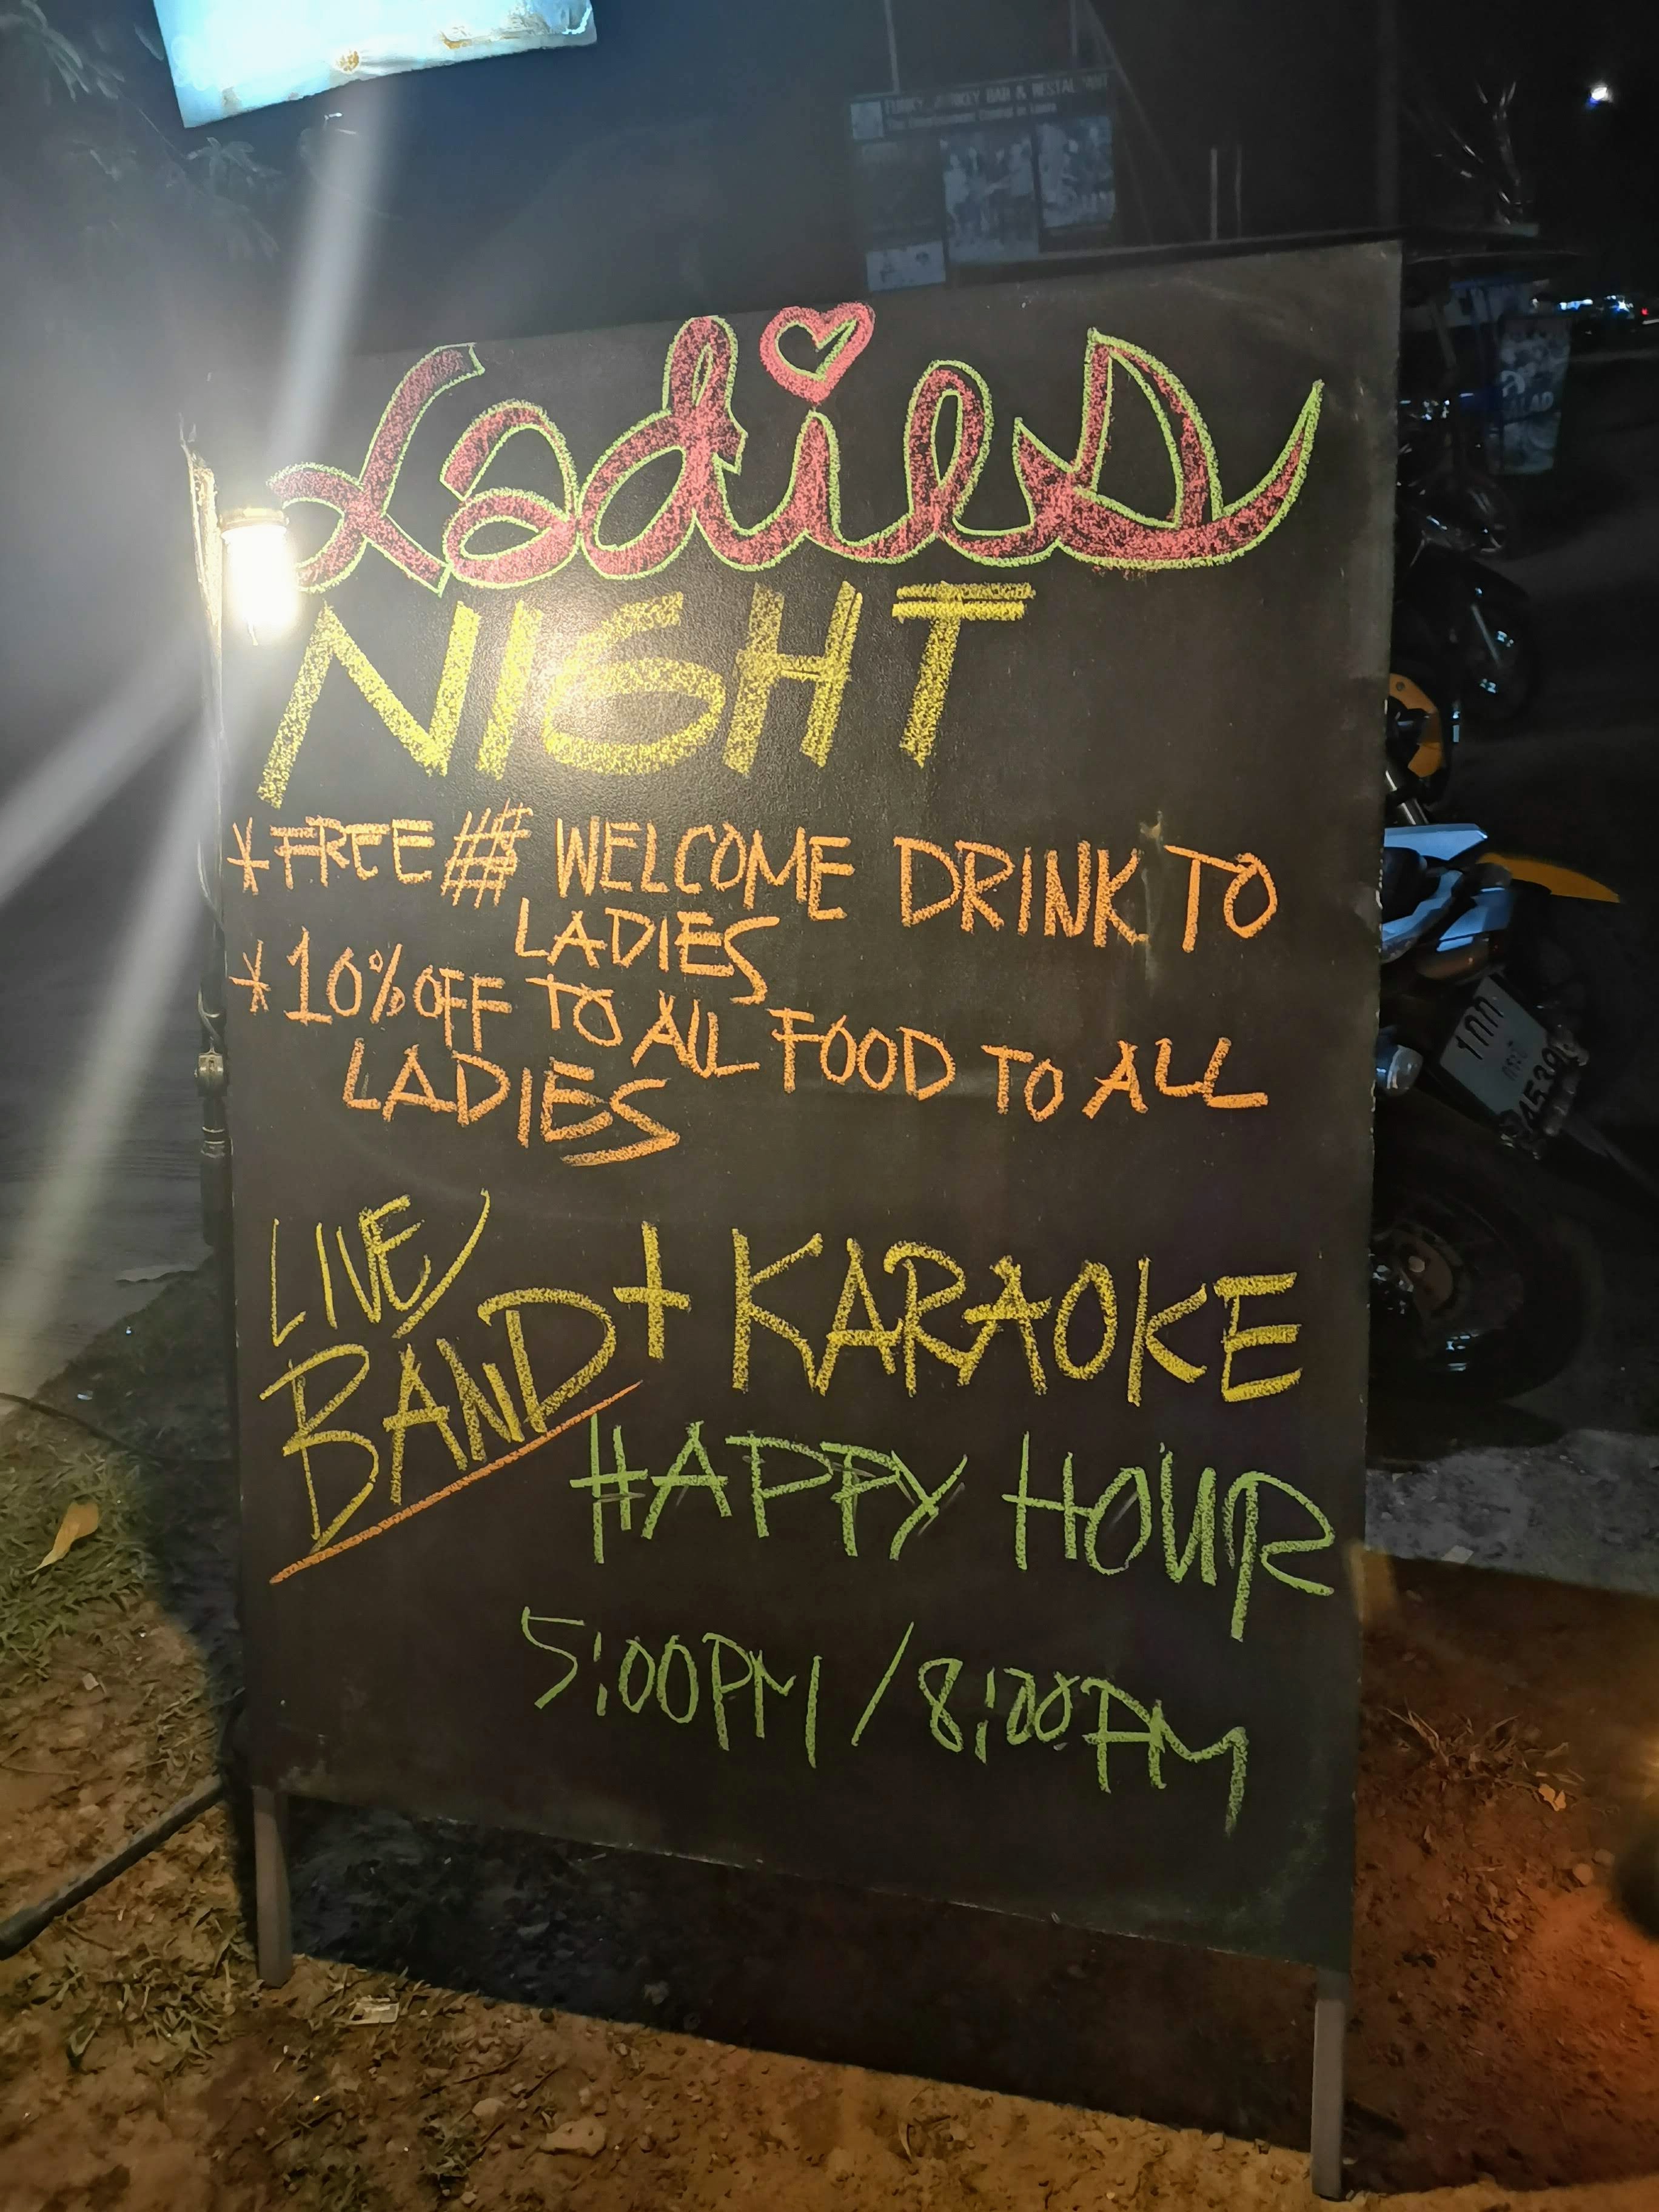 FUNKY MONKEY BAR & RESTAURANT
Ladies
NIGHT
* FREE # WELCOME DRINK TO
LADIES
* 10% OFF TO ALL FOOD TO ALL
LADIES
LIVE
BAND + KARAOKE
HAPPY HOUR
5:00PM / 8:00PM
1กก